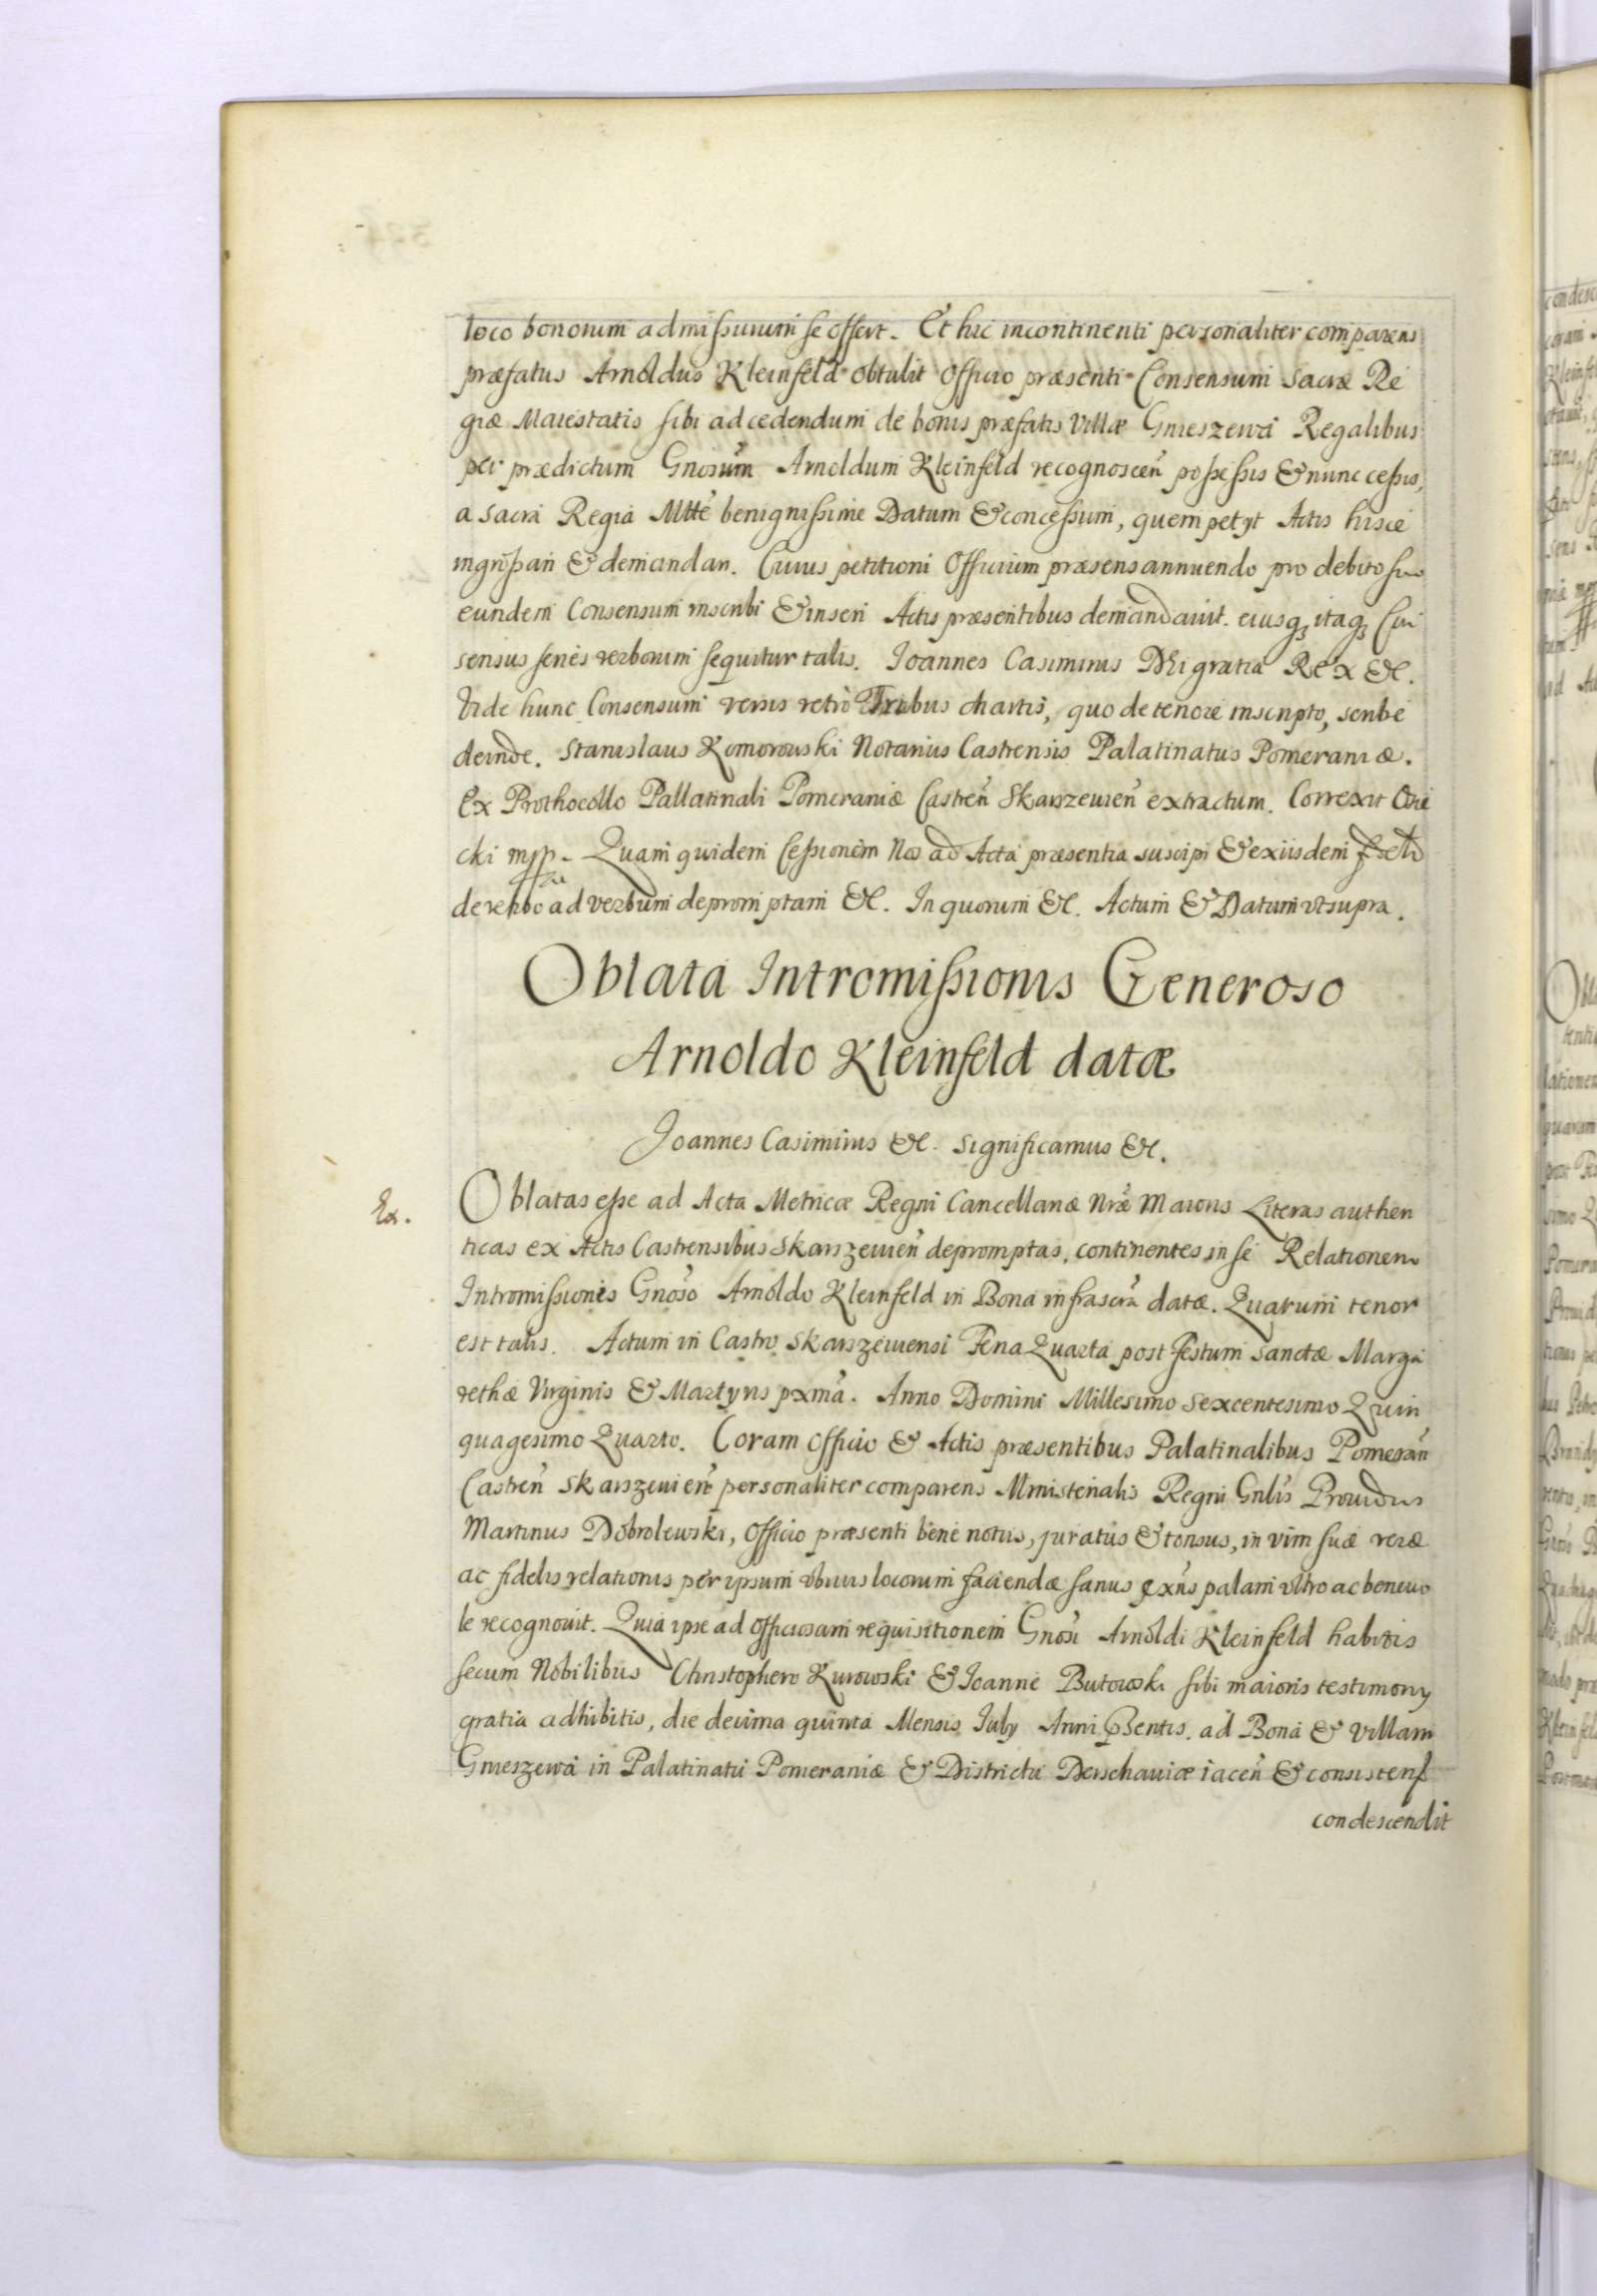 loco bonorum admissurum se offert. Et hic incontinenti personaliter comparens
præfatus Arnoldus Kleinfeld obtulit Officio præsenti Consensum Sacræ Re
giæ Maiestatis sibi ad cedendum de bonis præfatis Villæ Gnieszewa Regalibus
per prædictum Gnosum Arnoldum Kleinfeld recognoscen̄ possessis & nunc cessis,
a Sacra Regia Mtte benignissime Datum & concessum, quem petyt Actis hisce
ingrossari & demandari. Cuius petitioni Officium præsens annuendo pro debito suo
eundem Consensum inscribi & inseri Actis præsentibus demandavit. eiusq; itaq; Con
sensus series verborum sequitur talis. Joannes Casimirus Dei gratia Rex &c.
Vide hunc Consensum versis retrò Tribus chartis, quo de tenore inscripto, scribe
deinde. Stanislaus Komorowski Notarius Castrensis Palatinatus Pomeraniæ.
Ex Prothocollo Pallatinali Pomeraniæ Castren̄ Skarszewien̄ extractum. Correxit
cki mpp. Quam quidem Cessionem Nos ad Acta præsentia suscipi & exiisdem
de verbo ad verbum depromptam &c. In quorum &c. Actum & Datum vt supra.
Oblata Intromissionis Generoso
Arnoldo Kleinfeld datæ
Joannes Casimirus &c. Significamus &c.
Ex.
Oblatas esse ad Acta Metricæ Regni Cancellariæ Nræ Maioris Literas authen
ticas ex Actis Castrensibus Skarszewien̄ depromptas, continentes in se Relationem
Intromissionis Gnoso Arnoldo Kleinfeld in Bona infrascra datæ. Quarum tenor
est talis. Actum in Castro Skarszewensi Feria Quarta post festum Sanctæ Marga
rethæ Virginis & Martyris pxma. Anno Domini Millesimo Sexcentesimo Quin
quagesimo Quarto. Coram Officio & Actis præsentibus Palatinalibus Pomeran̄
Castren̄ Skarszewien̄ personaliter comparens Ministerialis Regni Gnlis Providus
Martinus Dobrolewski, Officio præsenti bene notus, juratus & tonsus, in vim suæ veræ
ac fidelis relationis per ipsum obuius locorum faciendæ sanus exns palam vltro ac beneuo
le recognouit. Quia ipse ad Officiosam requisitionem Gnosi Arnoldi Kleinfeld habitis
secum Nobilibus Christophero Kurowski & Joanne Butowski sibi maioris testimony
gratia adhibitis, die decima quinta Mensis July Anni Psentis. ad Bona & Villam
Gnieszewa in Palatinatu Pomeraniæ & Districtu Derschauiæ iacen̄ & consisten
condescendit